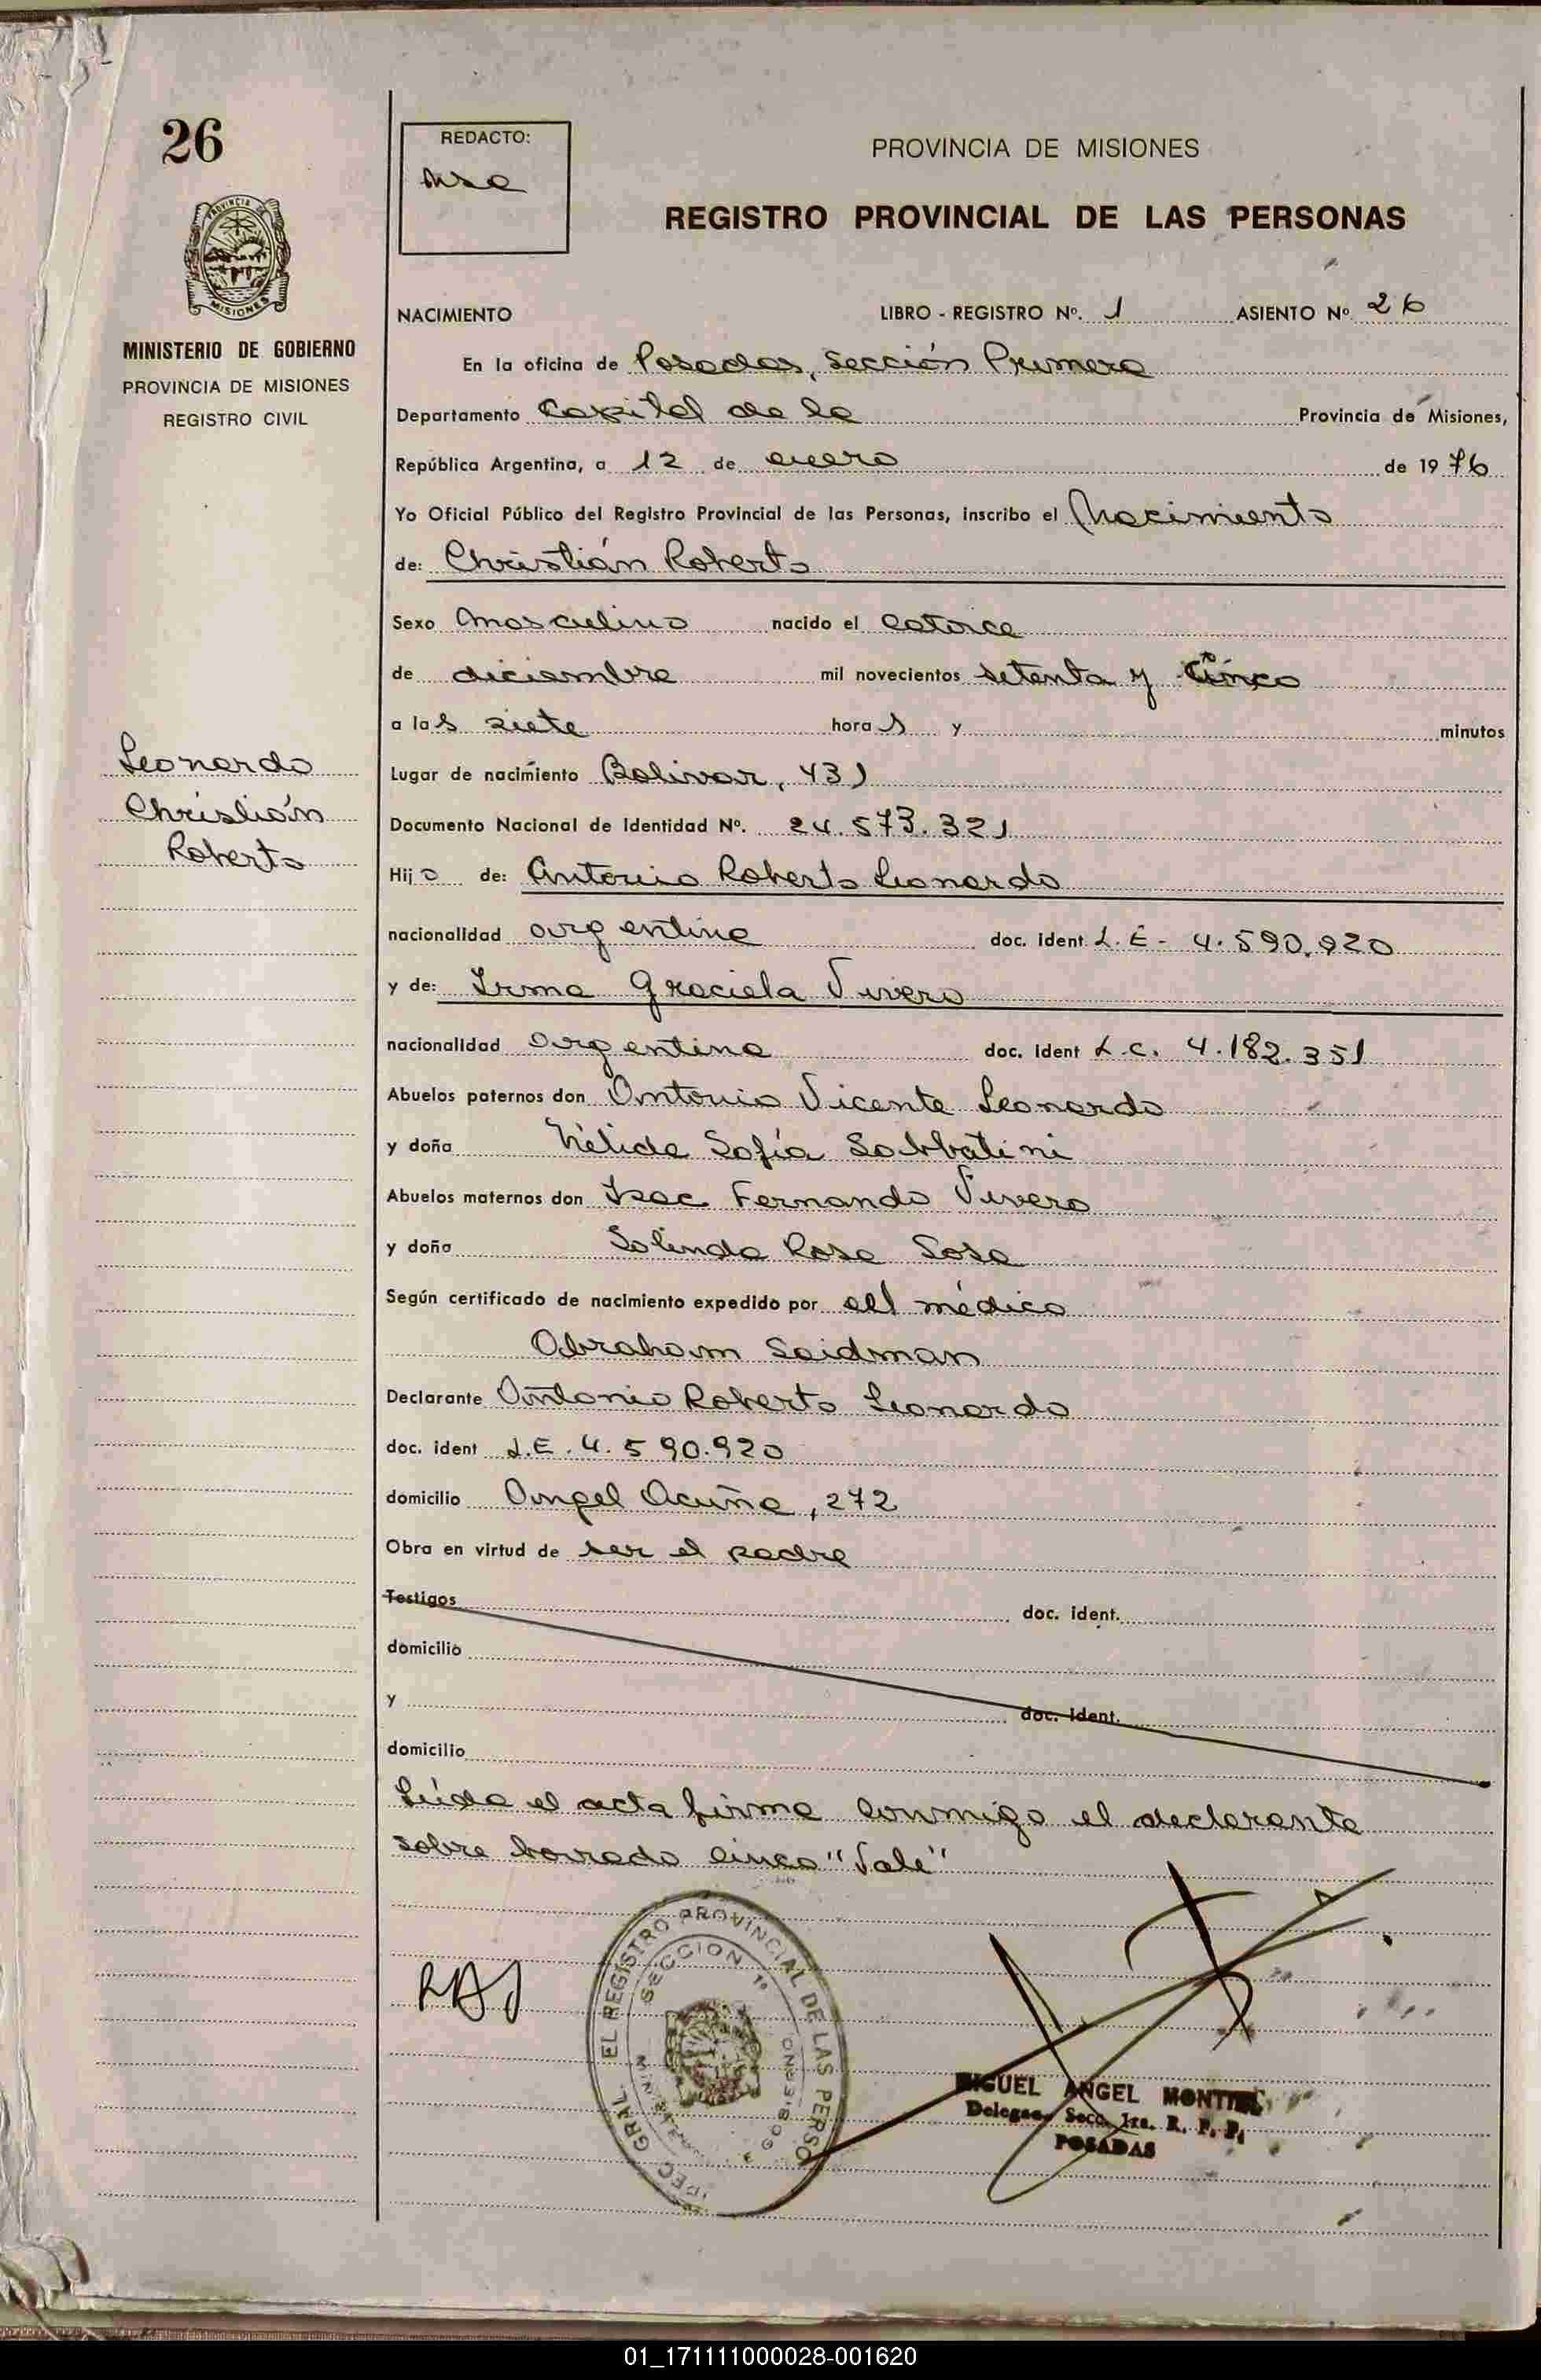 26
PROVINCIA DE
MISIONES
MINISTERIO DE GOBIERNO
PROVINCIA DE MISIONES
REGISTRO CIVIL
Leonardo
Christián
Roberto
REDACTO:
PROVINCIA DE MISIONES
REGISTRO PROVINCIAL DE LAS PERSONAS
NACIMIENTO LIBRO - REGISTRO Nº. 1 ASIENTO Nº 26
En la oficina de Posadas, Sección Primera
Departamento Capital de la Provincia de Misiones,
República Argentina, a 12 de enero de 1976
Yo Oficial Público del Registro Provincial de las Personas, inscribo el Nacimiento
de: Christián Roberto
Sexo Masculino nacido el catorce
de diciembre mil novecientos setenta y cinco
a las siete horas y minutos
Lugar de nacimiento Bolivar, 431
Documento Nacional de Identidad Nº. 24.573.321
Hijo de: Antonio Roberto Leonardo
nacionalidad argentina doc. ident L.E- 4.590.920
y de: Irma Graciela Vivero
nacionalidad argentina doc. ident L.C. 4.182.351
Abuelos paternos don Antonio Vicente Leonardo
y doña Nélida Sofía Sabbatini
Abuelos maternos don Isac Fernando Vivero
y doña Solinda Rosa Sosa
Según certificado de nacimiento expedido por el médico
Abraham Saidman
Declarante Antonio Roberto Leonardo
doc. ident L.E. 4.590.920
domicilio Angel Acuña, 272
Obra en virtud de ser el padre
Testigos doc. ident.
domicilio
y doc. ident.
domicilio
Leída el acta firma conmigo el declarante
sobre borrado cinco "Vale"
GRAL. EL REGISTRO PROVINCIAL DE LAS PERSO
SECCION 1º
MIGUEL ANGEL MONTIEL
Secc. 1ra. R. P. P.
POSADAS
01_171111000028-001620